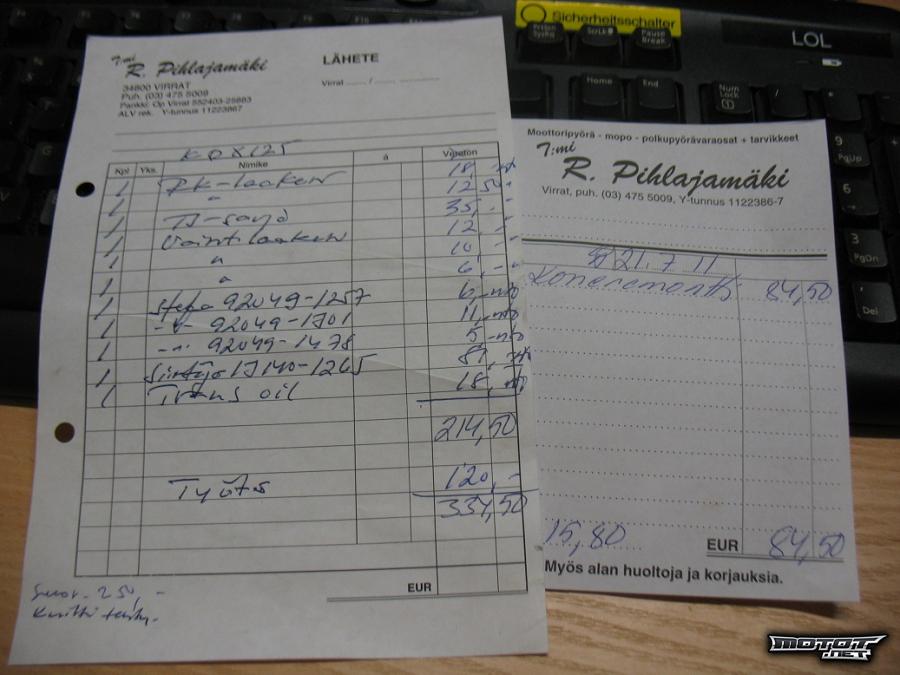 T:mi
R. Pihlajamäki
LÄHETE
34800 VIRRAT
Puh. (03) 475 5009
Pankki: Op Virrat 552403-25883
ALV rek. Y-tunnus 11223867
Virrat ...... / ......
KDX125
Kpl Yks. Nimike à Veroton
1 RK-laakeri 18,
1 " 12,50
1 TJ-sarja 35,-
1 12,
1 " 10
1 " 6,-
1 92049-1257 6,-
1 -"- 92049-1301 11,-
1 -"- 92049-1478 5,-
1 13140-1265 81,
1 Trans oil 18,
214,50
Työtä 120,-
334,50
EUR
Suor. 250,-
Sicherheitsschalter
Print Scrn
SysRq
ScrLk
Pause
Break
LOL
Home
End
Num
Lock
9
PgUp
6
3
PgDn
Del
Moottoripyörä - mopo - polkupyörävaraosat + tarvikkeet
T:mi
R. Pihlajamäki
Virrat, puh. (03) 475 5009, Y-tunnus 1122386-7
21.7 11
Koneremontti 84,50
15,80
EUR 84,50
Myös alan huoltoja ja korjauksia.
MOTOT
.NET